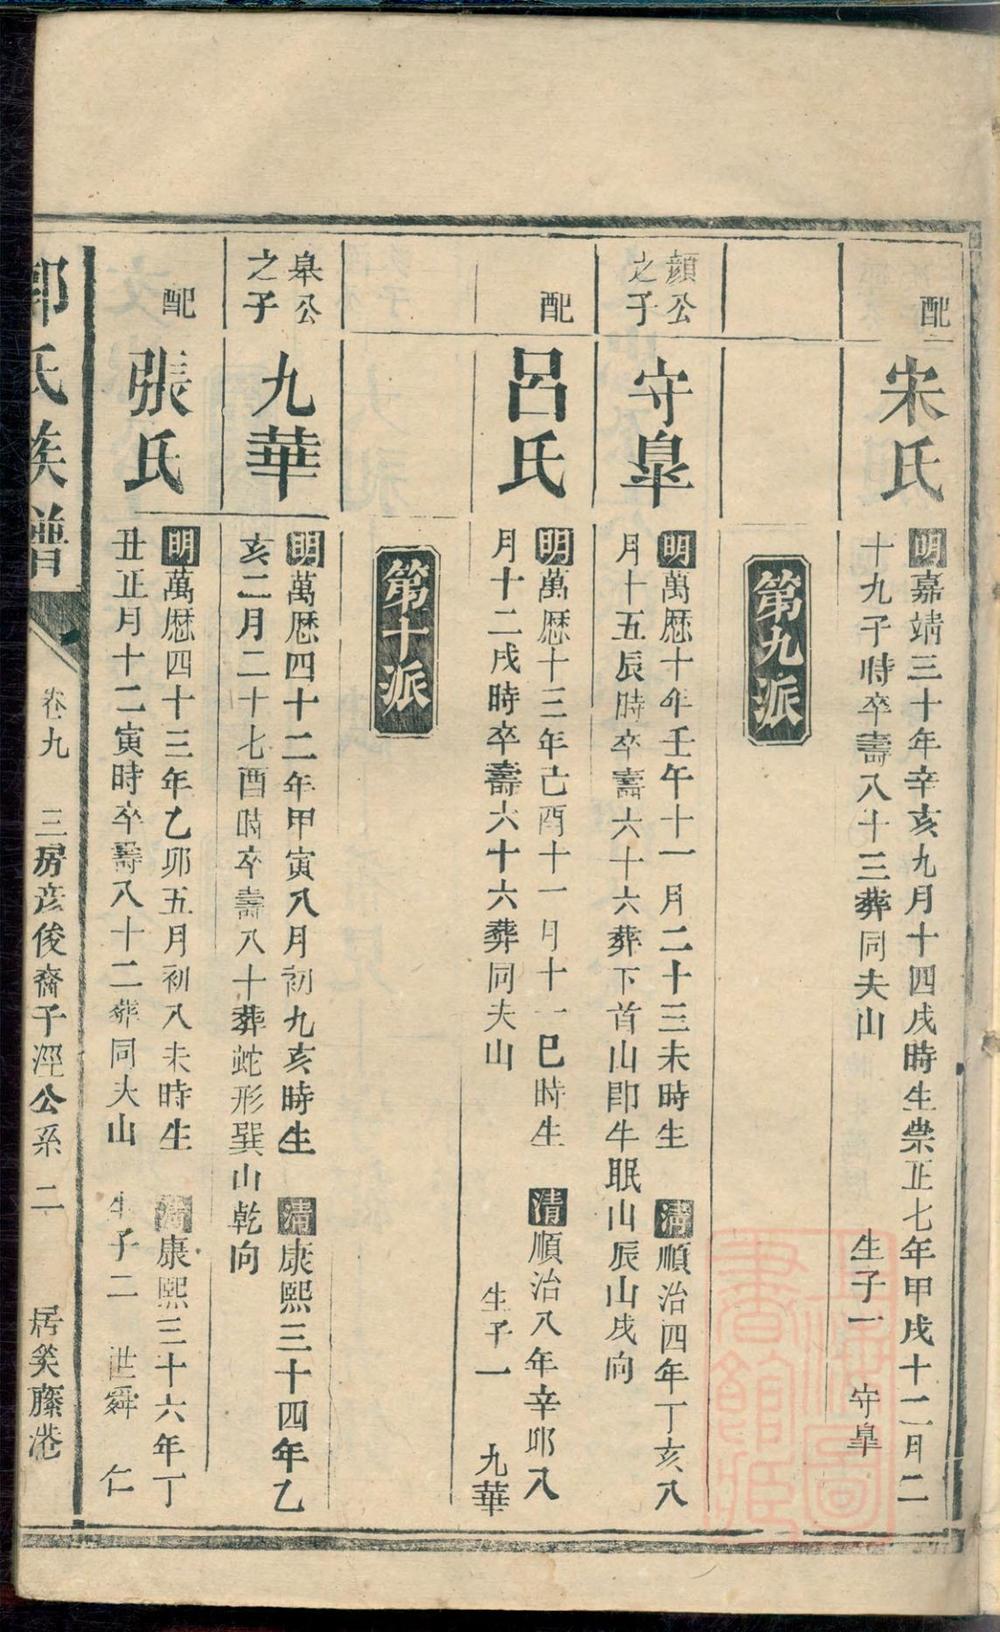 配
宋氏
明嘉靖三十年辛亥九月十四戌時生崇正七年甲戌十二月二
十九子時卒壽八十三葬同夫山 生子一 守皐
第九派
顏公
之子
守皐
明萬歷十年壬午十一月二十三未時生 清順治四年丁亥八
月十五辰時卒壽六十六葬下首山即牛眠山辰山戌向
配
呂氏
明萬歷十三年己酉十一月十一巳時生 清順治八年辛卯八
月十二戌時卒壽六十六葬同夫山 生子一 九華
第十派
皐公
之子
九華
明萬歷四十二年甲寅八月初九亥時生 清康熙三十四年乙
亥二月二十七酉時卒壽八十葬蛇形巽山乾向
配
張氏
明萬歷四十三年乙卯五月初八未時生 清康熙三十六年丁
丑正月十二寅時卒壽八十二葬同夫山 生子二 世舜 仁
氏族譜 卷九 三房彦俊裔子涇公系 二 居矣藤港